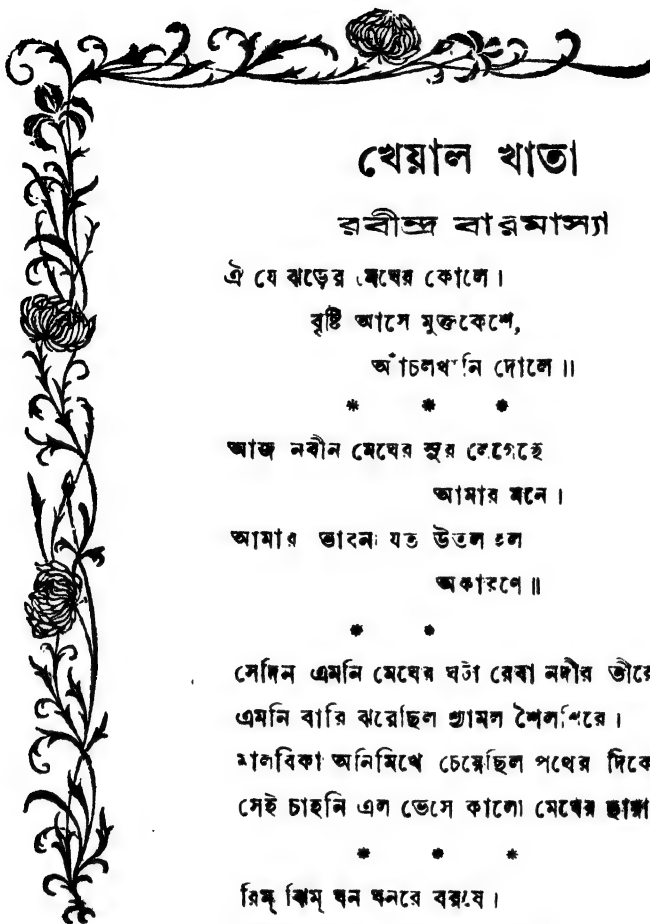 খেয়াল খাতা
রবীন্দ্র বারমাস্যা
ঐ যে ঝড়ের মেঘের কোলে।
বৃষ্টি আসে মুক্তকেশে,
আঁচলখানি দোলে॥
* * *
আজ নবীন মেঘের সুর লেগেছে
আমার মনে।
আমার ভাবনা যত উতল হল
অকারণে॥
* *
সেদিন এমনি মেঘের ঘটা রেবা নদীর তীরে
এমনি বারি ঝরেছিল শ্যামল শৈলশিরে।
মালবিকা অনিমিখে চেয়েছিল পথের দিকে
সেই চাহনি এল ভেসে কালো মেঘের
* * *
রিম্ ঝিম্ ঘন ঘনরে বরষে।